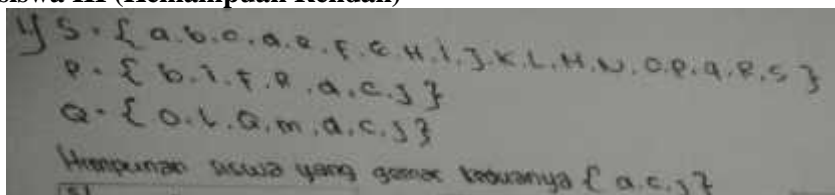 siswa III (Kemampuan Rendah)
4) S = { a.b.c.d.e.F.G.H.I.J.K.L.M.N.O.P.q.R.S }
P = { b.i.F.P.d.c.j }
Q = { O.L.Q.m.d.c.j }
Himpunan siswa yang gemar keduanya { d.c.j }